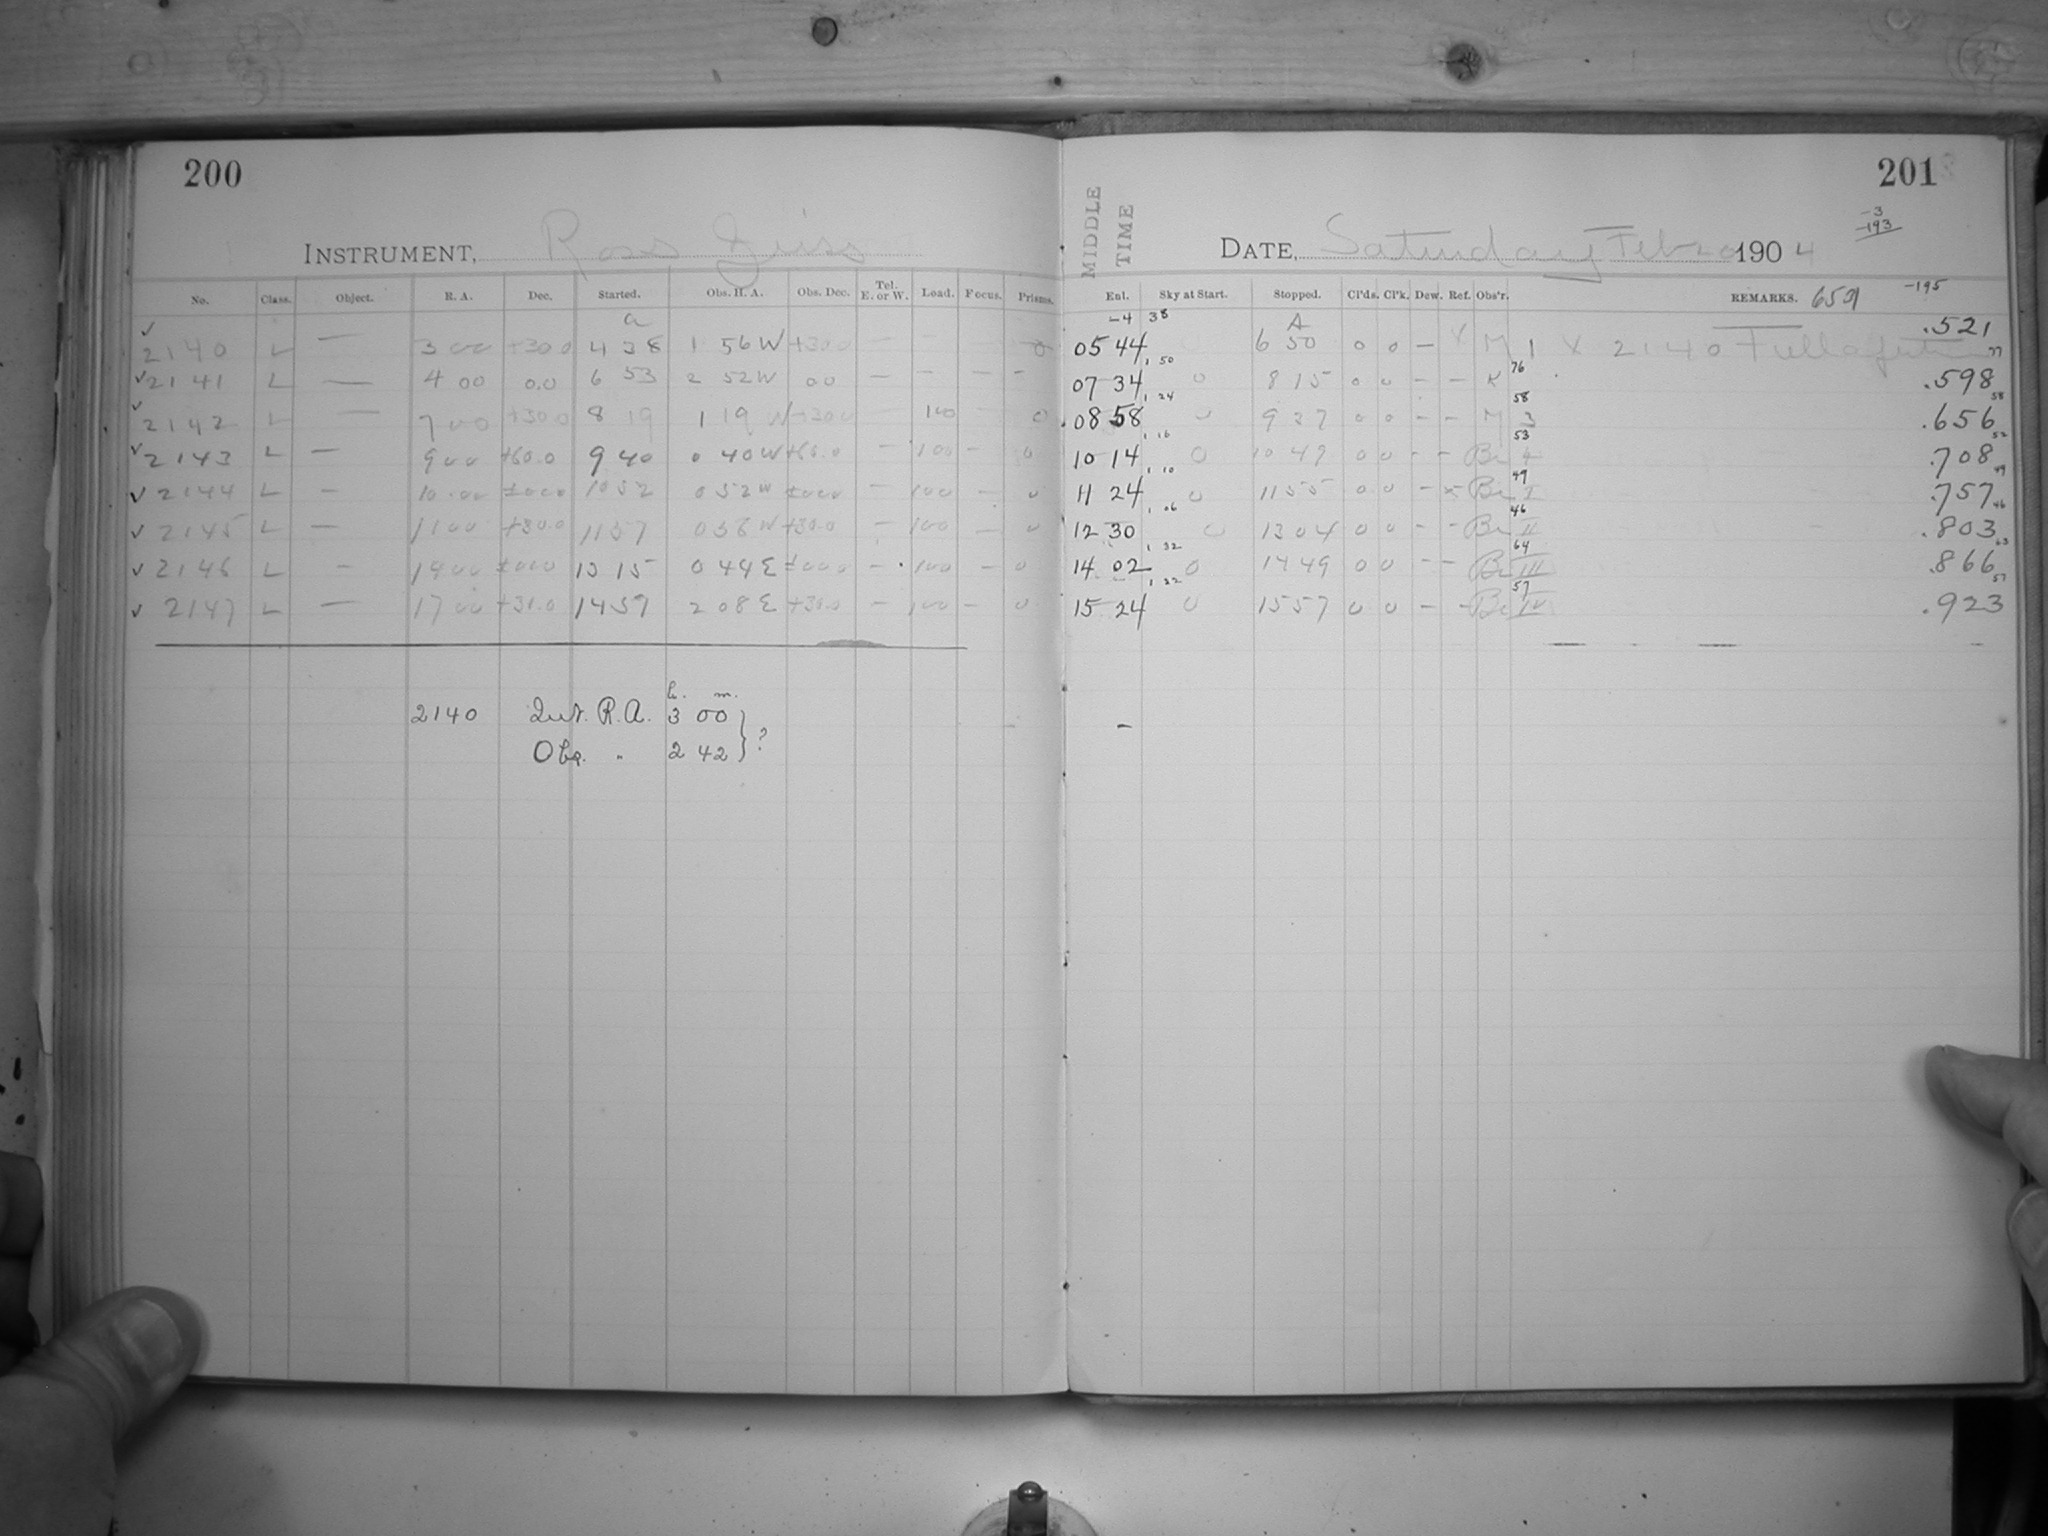 200
INSTRUMENT, Ross
No. Class. Object. R. A. Dec. Started. Obs. H. A. Obs. Dec. Tel. E. or W. Load. Focus. Prisms.
a
2140 L — 3 00 +30.0 4 38 1 56 W +30.0 — — — 0
2141 L — 4 00 0.0 6 53 2 52 W 00 — — — —
2142 L — 7 00 +30.0 8 19 1 19 W +30.0 — 100 — 0
2143 L — 9 00 +60.0 9 40 0 40 W +60.0 — 100 — 0
2144 L — 10 00 ±000 10 52 0 52 W ±000 — 100 — 0
2145 L — 11 00 +30.0 11 57 0 58 W +30.0 — 100 — 0
2146 L — 14 00 ±000 13 15 0 44 E ±000 — 100 — 0
2147 L — 17 00 +30.0 14 59 2 08 E +30.0 — 100 — 0
h. m.
2140 Int. R.A. 3 00 } ?
Obs. " 2 42
201
-3
-193
MIDDLE TIME
DATE, Saturday Feb 20 1904
Enl. Sky at Start. Stopped. Cl'ds. Cl'k. Dew. Ref. Obs'r. REMARKS. 6591 -195
-4 38 A
05 44 6 50 0 0 — X M 1 X 2140 .521
1 50 76 77
07 34 0 8 15 0 0 — — K .598
1 24 58 58
08 58 0 9 37 0 0 — — M 3 .656
1 16 53 52
10 14 0 10 49 0 0 — — Br I .708
1 10 49 49
11 24 0 11 55 0 0 — X Br I .757
1 06 46 46
12 30 0 13 04 0 0 — — Br II .803
1 32 64 63
14 02 0 14 49 0 0 — — Br III .866
1 22 57 57
15 24 0 15 57 0 0 — — Br IV .923